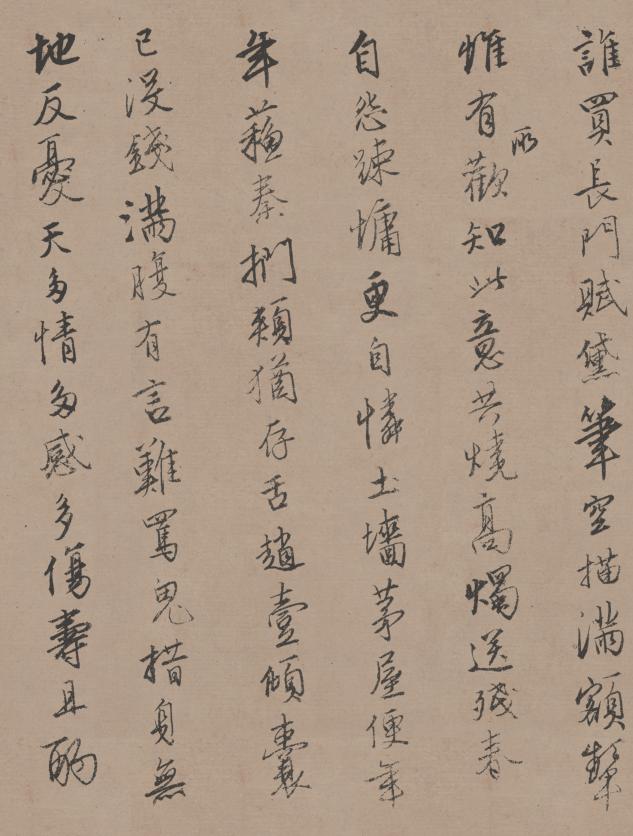 誰買長門賦黛筆空描滿額顰
惟有所歡知此意共燒高燭送殘春
自怨踈慵更自憐土墻茅屋便年
年蘓秦捫頰猶存舌趙壹傾囊
已沒錢滿腹有言難罵鬼措身無
地反憂天多情多感多傷壽且酌